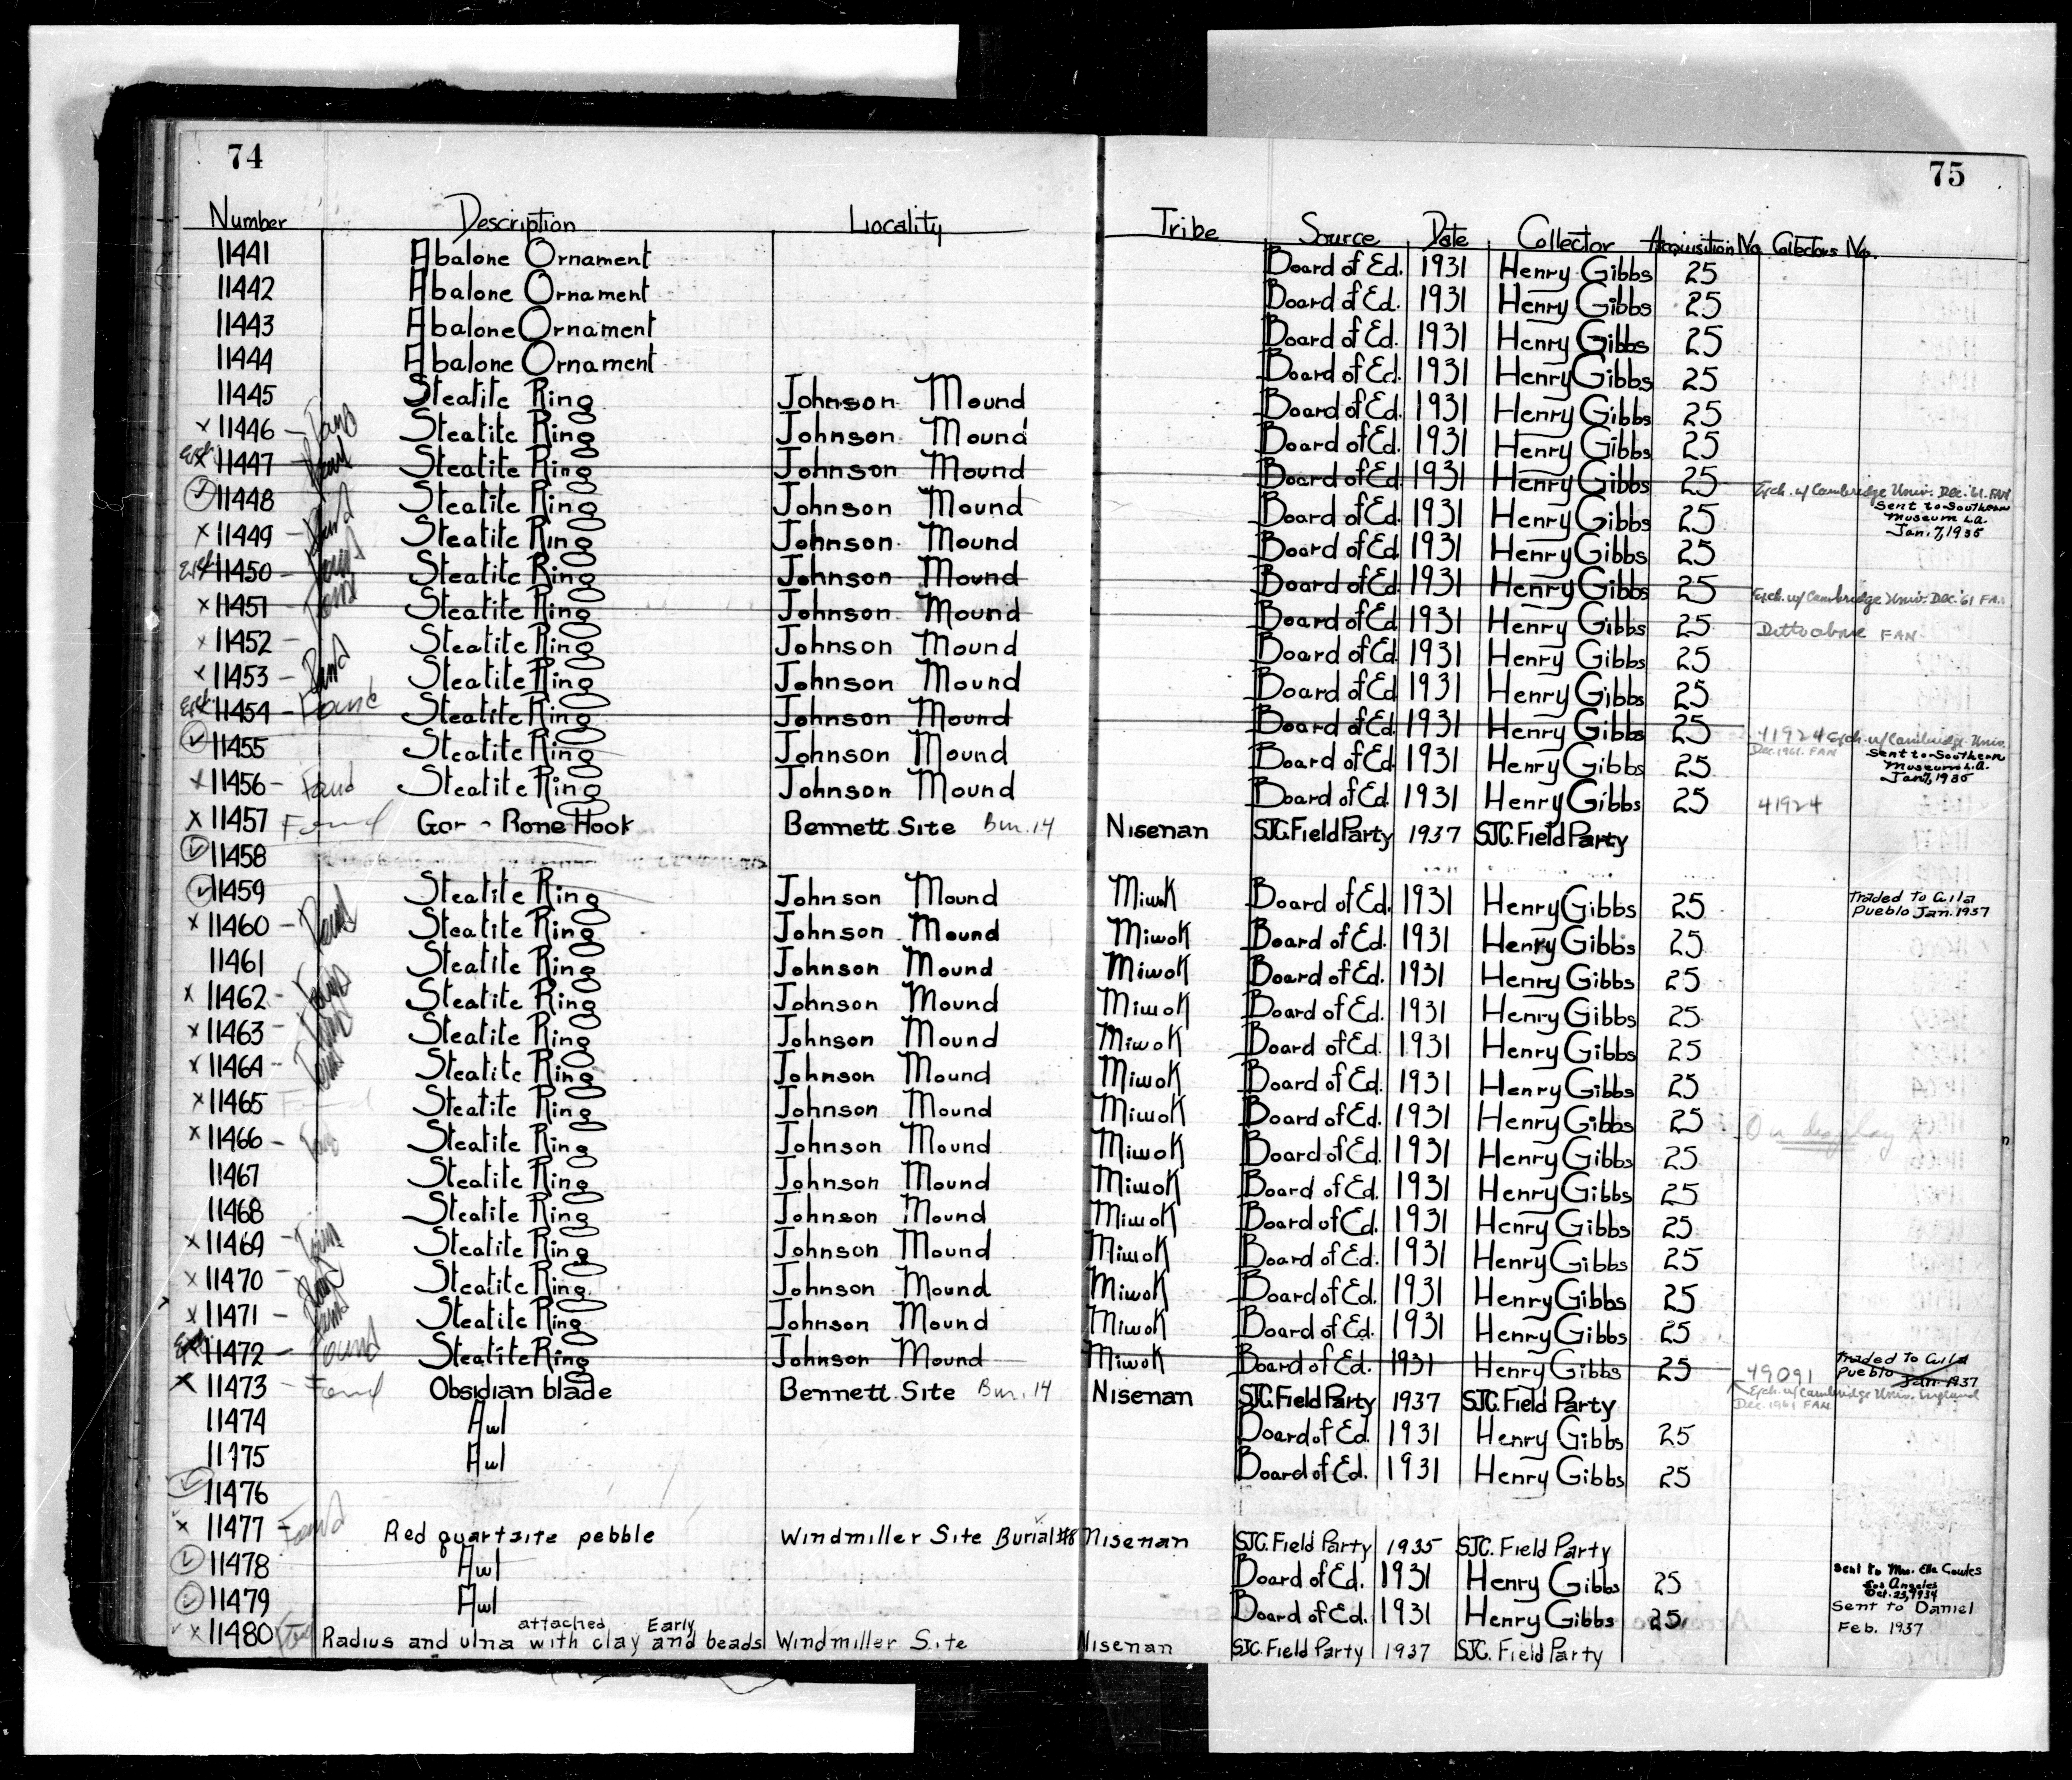 74
75
Number Description Locality Tribe Source Date Collector Acquisition No. Collectors No.
11441 Abalone Ornament Board of Ed. 1931 Henry Gibbs 25
11442 Abalone Ornament Board of Ed. 1931 Henry Gibbs 25
11443 Abalone Ornament Board of Ed. 1931 Henry Gibbs 25
11444 Abalone Ornament Board of Ed. 1931 Henry Gibbs 25
11445 Steatite Ring Johnson Mound Board of Ed. 1931 Henry Gibbs 25
x 11446 – Found Steatite Ring Johnson Mound Board of Ed. 1931 Henry Gibbs 25
x 11447 – Found Steatite Ring Johnson Mound Board of Ed. 1931 Henry Gibbs 25 Exch. w/ Cambridge Univ. Dec. '61. FAN
✓ 11448 Steatite Ring Johnson Mound Board of Ed. 1931 Henry Gibbs 25 Sent to Southern Museum L.A. Jan. 7, 1935
x 11449 – Found Steatite Ring Johnson Mound Board of Ed. 1931 Henry Gibbs 25
11450 – Found Steatite Ring Johnson Mound Board of Ed. 1931 Henry Gibbs 25 Exch. w/ Cambridge Univ. Dec. '61 FAN
x 11451 – Found Steatite Ring Johnson Mound Board of Ed. 1931 Henry Gibbs 25 Ditto above FAN
x 11452 – Steatite Ring Johnson Mound Board of Ed. 1931 Henry Gibbs 25
x 11453 – Found Steatite Ring Johnson Mound Board of Ed. 1931 Henry Gibbs 25
11454 – Found Steatite Ring Johnson Mound Board of Ed. 1931 Henry Gibbs 25 41924 Exch. w/ Cambridge Univ. Dec. 1961. FAN
✓ 11455 Steatite Ring Johnson Mound Board of Ed. 1931 Henry Gibbs 25 Sent to Southern Museum L.A. Jan 7, 1935
x 11456 – Found Steatite Ring Johnson Mound Board of Ed. 1931 Henry Gibbs 25 41924
x 11457 Found Gor - Bone Hook Bennett Site Bur. 14 Nisenan SJC. Field Party 1937 SJC. Field Party
✓ 11458
✓ 11459 Steatite Ring Johnson Mound Miwok Board of Ed. 1931 Henry Gibbs 25 Traded to Gila Pueblo Jan. 1937
x 11460 – Found Steatite Ring Johnson Mound Miwok Board of Ed. 1931 Henry Gibbs 25
11461 Steatite Ring Johnson Mound Miwok Board of Ed. 1931 Henry Gibbs 25
x 11462 – Found Steatite Ring Johnson Mound Miwok Board of Ed. 1931 Henry Gibbs 25
x 11463 – Found Steatite Ring Johnson Mound Miwok Board of Ed. 1931 Henry Gibbs 25
x 11464 – Found Steatite Ring Johnson Mound Miwok Board of Ed. 1931 Henry Gibbs 25
x 11465 Found Steatite Ring Johnson Mound Miwok Board of Ed. 1931 Henry Gibbs 25 On display
x 11466 – Found Steatite Ring Johnson Mound Miwok Board of Ed. 1931 Henry Gibbs 25
11467 Steatite Ring Johnson Mound Miwok Board of Ed. 1931 Henry Gibbs 25
11468 Steatite Ring Johnson Mound Miwok Board of Ed. 1931 Henry Gibbs 25
x 11469 – Found Steatite Ring Johnson Mound Miwok Board of Ed. 1931 Henry Gibbs 25
x 11470 – Found Steatite Ring Johnson Mound Miwok Board of Ed. 1931 Henry Gibbs 25
x 11471 – Found Steatite Ring Johnson Mound Miwok Board of Ed. 1931 Henry Gibbs 25
11472 – Found Steatite Ring Johnson Mound Miwok Board of Ed. 1931 Henry Gibbs 25 49091 Traded to Gila Pueblo Jan. 1937
x 11473 – Found Obsidian blade Bennett Site Bur. 14 Nisenan SJC. Field Party 1937 SJC. Field Party Exch. w/ Cambridge Univ. England Dec. 1961 FAN
11474 Awl Board of Ed. 1931 Henry Gibbs 25
11475 Awl Board of Ed. 1931 Henry Gibbs 25
✓ 11476
x 11477 – Found Red quartsite pebble Windmiller Site Burial #8 Nisenan SJC. Field Party 1935 SJC. Field Party
✓ 11478 Awl Board of Ed. 1931 Henry Gibbs 25 Sent to Mrs. Ella Cowles Los Angeles Oct. 23, 1934
✓ 11479 Awl Board of Ed. 1931 Henry Gibbs 25 Sent to Daniel Feb. 1937
x 11480 Radius and ulna with attached clay and Early beads Windmiller Site Nisenan SJC. Field Party 1937 SJC. Field Party